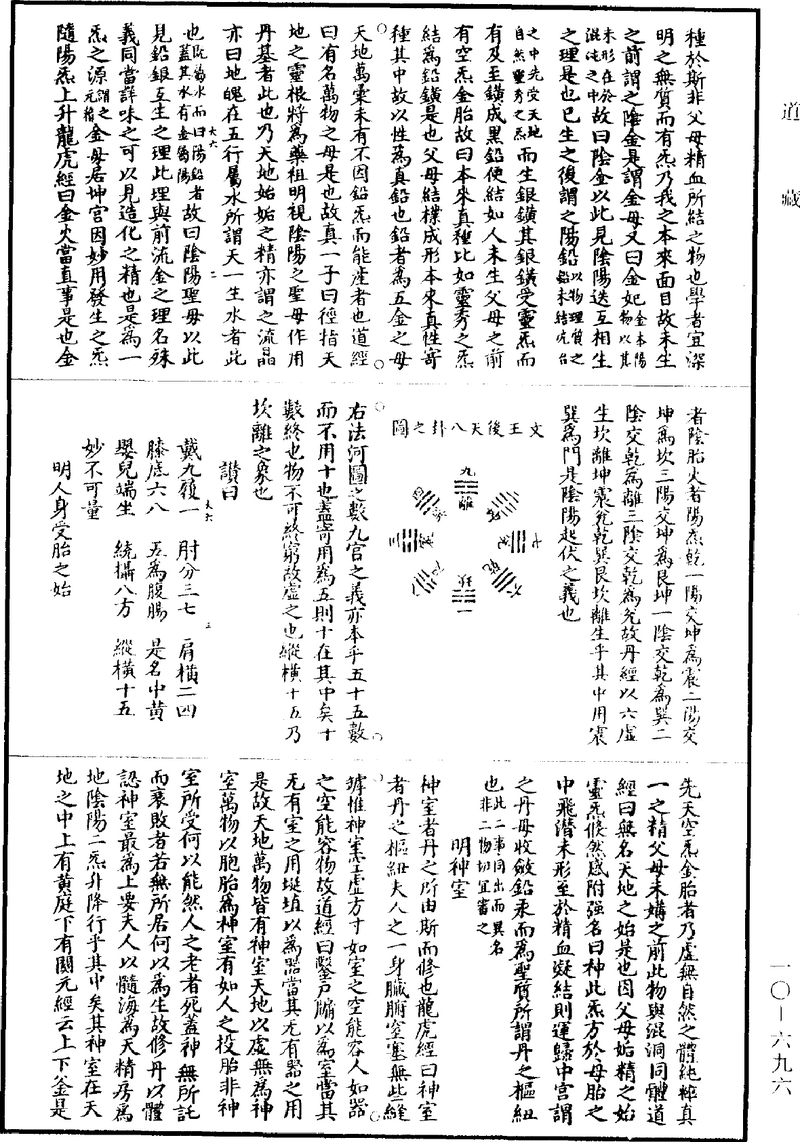 道藏
種於斯非父母精血所結之物也學者宜深
明之無質而有炁乃我之本來面目故未生
之前謂之陰金是謂金母又曰金妃金本陽物以其
未形在於混沌之中故曰陰金以此見陰陽迭互相生
之理是也已生之後謂之陽鉛以物理質之鉛未結咣台
之中先受天地自然靈秀之炁而生銀鑛其銀鑛受靈炁而
有及至鑛成黑鉛便結如人未生父母之前
有空炁金胎故曰本來真種比如靈秀之炁
結為鉛鑛是也父母結樸成形本來真性寄
種其中故以性為真鉛也鉛者為五金之母
天地萬彙未有不因鉛炁而能產者也道經
曰有名萬物之母是也故真一子曰徑指天
地之靈根將為藥祖明視陰陽之聖母作用
丹基者此也乃天地始始之精亦謂之流晶
亦曰地魄在五行屬水所謂天一生水者此
也既為水而曰陽鉛者蓋其水有金爲陽故曰陰陽聖母以此
見鉛銀互生之理此理與前流金之理名殊
義同當詳味之可以見造化之精也是為一
炁之源謂之元胎金母居坤宮因妙用發生之炁
隨陽炁上升龍虎經曰金火當直事是也金
者陰胎火者陽炁乾一陽交坤為震二陽交
坤為坎三陽交坤為艮坤一陰交乾為巽二
陰交乾為離三陰交乾為兌故丹經以六虛
生坎離坤震兌乾巽艮坎離生乎其中用震
巽為門是陰陽起伏之義也
文王後天八卦之圖
九
離
七
兌
六
乾
坎
一
右法河圖之數九宮之義亦本乎五十五數
而不用十也蓋寄用為五則十在其中矣十
數終也物不可終窮故虛之也縱橫十五乃
坎離之象也
讚曰
戴九履一 肘分三七 肩橫二四
膝底六八 五為腹腸 是名中黃
嬰兒端坐 統攝八方 縱橫十五
妙不可量
明人身受胎之始
先天空炁金胎者乃虛無自然之體純粹真
一之精父母未媾之前此物與混洞同體道
經曰無名天地之始是也因父母媾精之始
靈炁倏然感附強名曰种此炁方於母胎之
中飛潛未形至於精血凝結則運歸中宮謂
之丹母收斂鉛汞而為聖質所謂丹之樞紐
也此二事同出而異名非二物切宜審之
明神室
神室者丹之所由斯而修也龍虎經曰神室
者丹之樞紐夫人之一身臟腑窒塞無些縫
罅惟神室空虛方寸如室之空能容人如器
之空能容物故道經曰鑿戶牖以為室當其
无有室之用埏埴以為器當其无有器之用
是故天地萬物皆有神室天地以虛無為神
室萬物以胞胎為神室有如人之投胎非神
室所受何以能然人之老者死蓋神無所託
而衰敗者若無所居何以為生故修丹以體
認神室最為上要夫人以髓海為天精房為
地陰陽二炁升降行乎其中矣其神室在天
地之中上有黃庭下有關元經云上下釜是
一〇—六九六